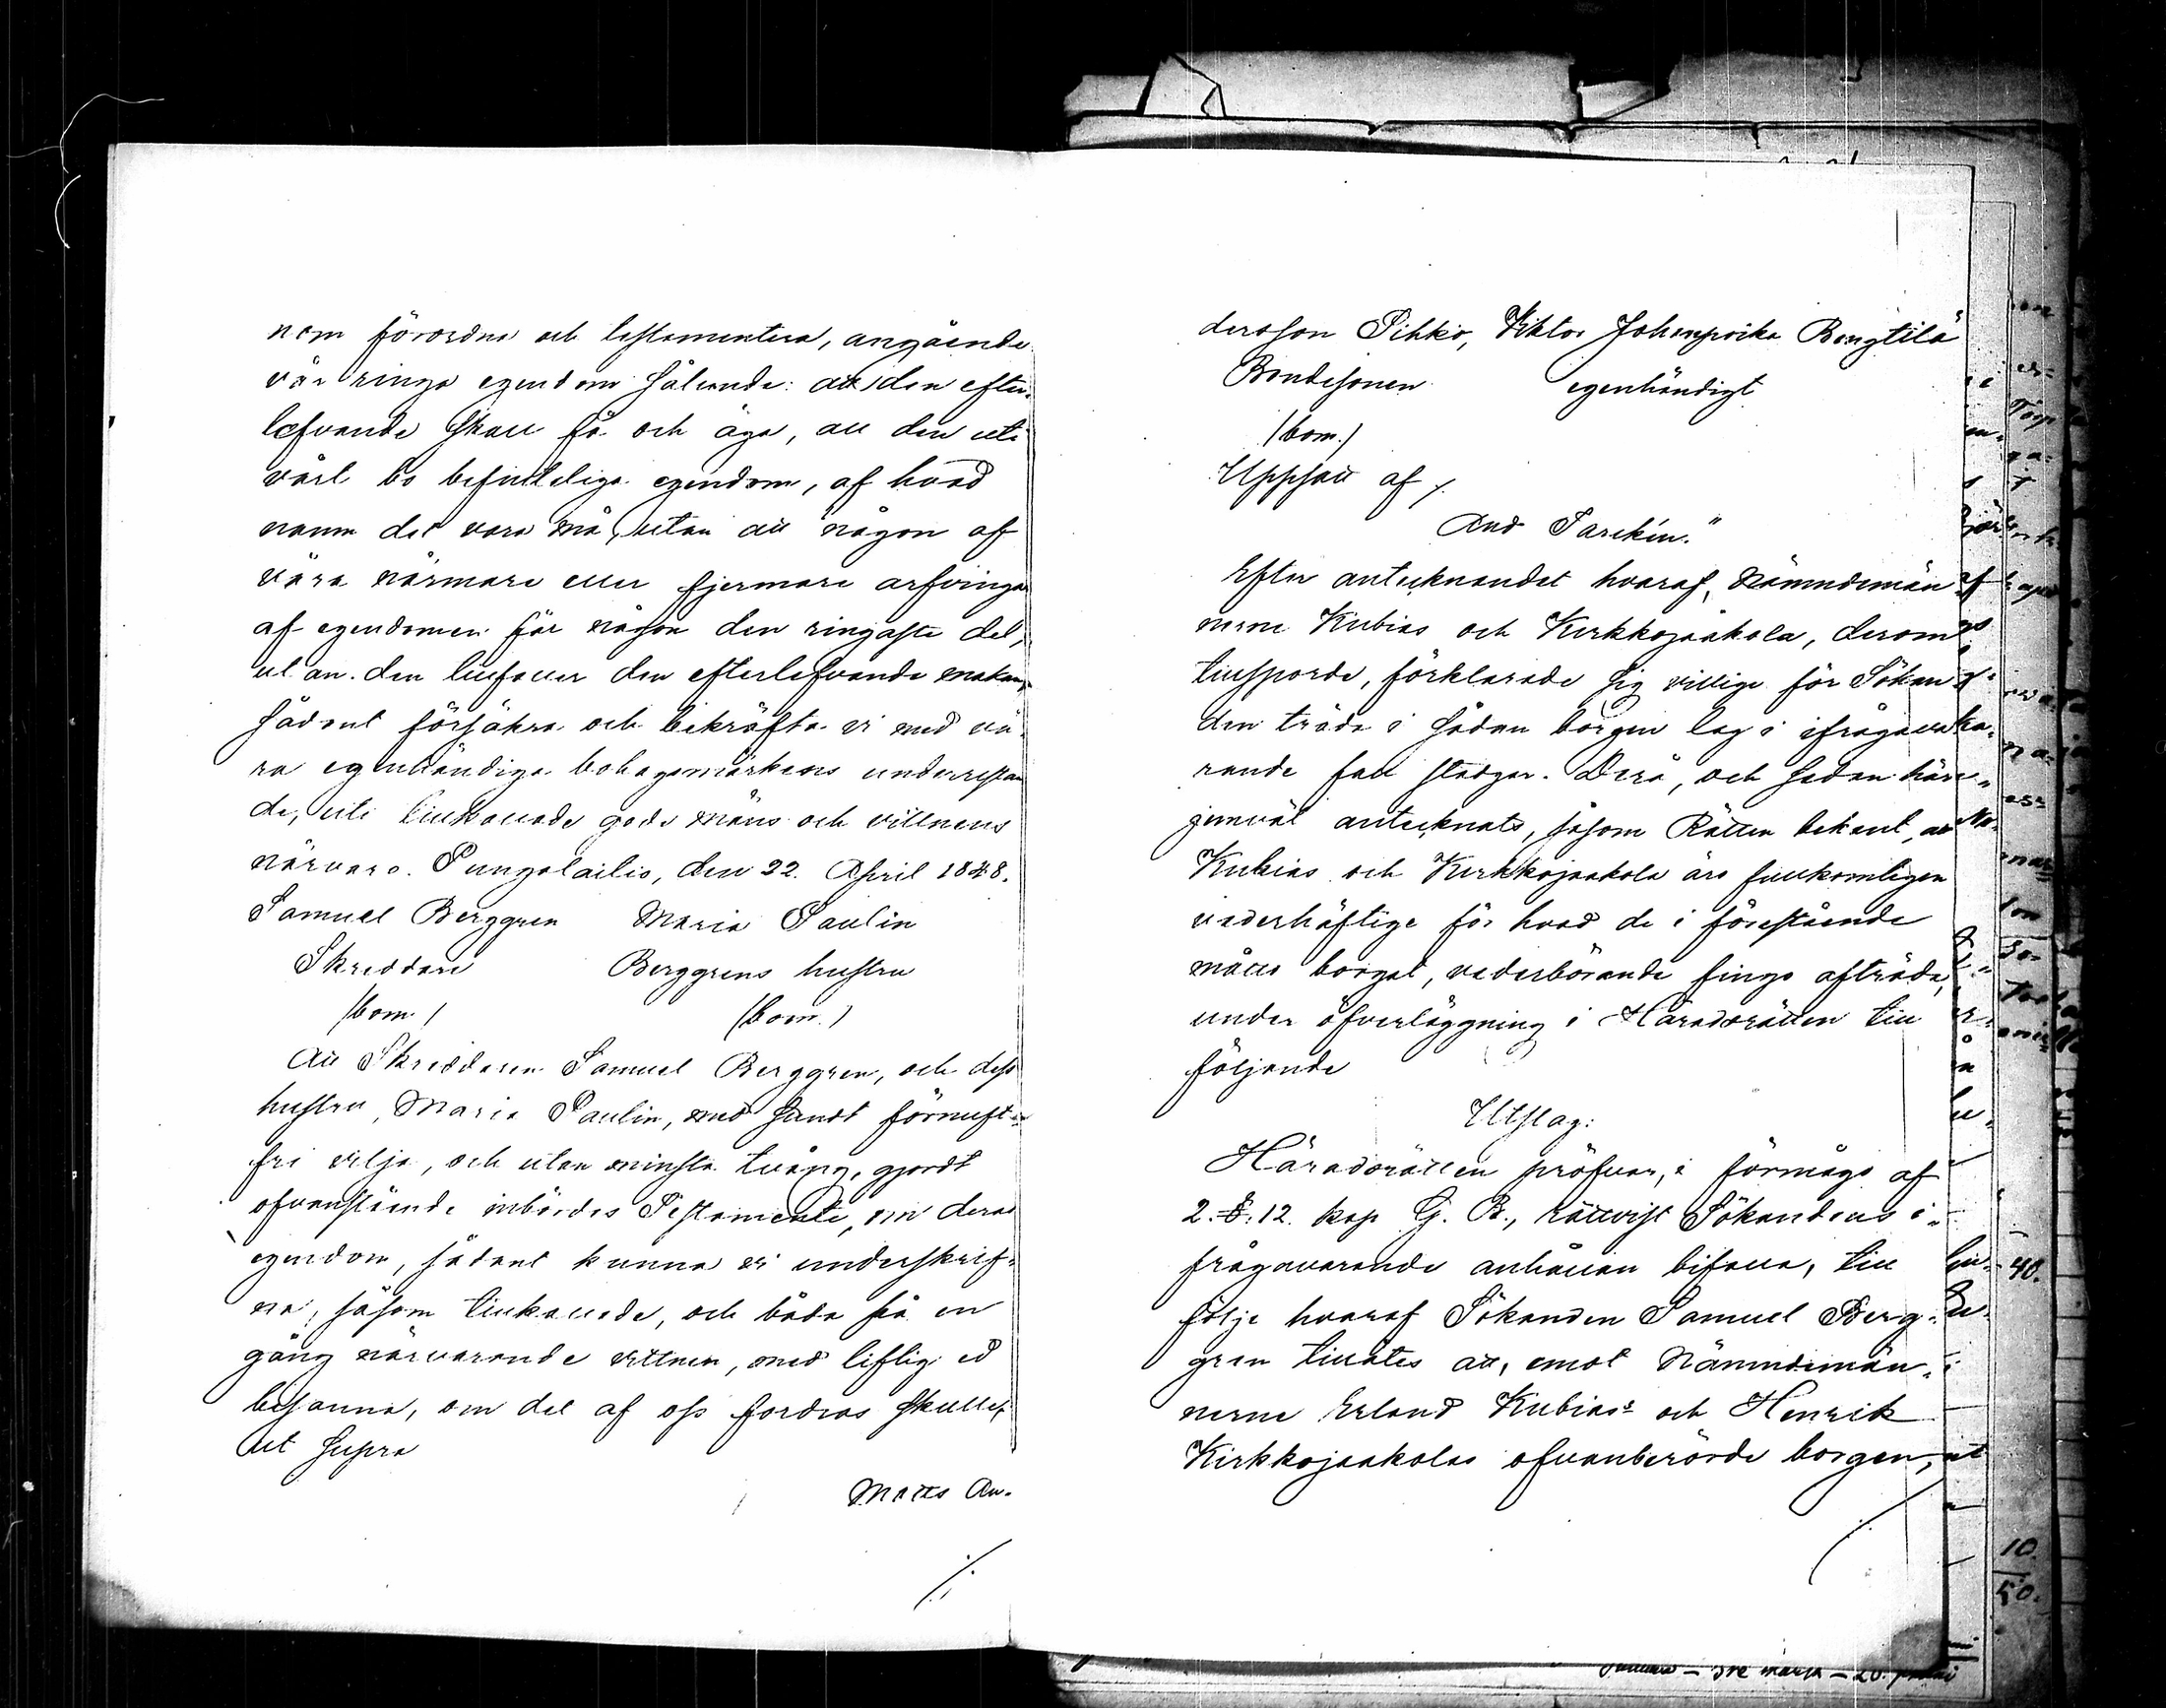 nom förordna och testamentera, angående
vår ringa egendom sålunda: att den efter-
lefvande skall få och äga, all den uti
vårt bo befinteliga egendom, af hvad
namn det vara må, utan att någon af
våra närmare eller fjermare arfvingar
af egendomen får någon den ringaste del,
utan den tillfaller den efterlefvande makan,
sådant försäkra och bekräfta vi med vå-
ra egenhändiga bohagsmärkens underrittan
de, uti tillkallade gode mäns och vittnens
närvaro. Pungalailio, den 22. April 1848.
Samuel Berggren Maria Paulin
Skreddare Berggrens hustru
/:bom:/ /:bom.:/
Att Skreddaren Samuel Berggren, och dess
hustru, Maria Paulin, med sundt förnuft
fri vilja, och utan minsta tvång, gjordt
ofvanstående inbördes Testamente, om deras
egendom, sådant kunna vi underskrif-
na, såsom tillkallade, och båda på en
gång närvarande vittnen, med liflig ed
besanna, om det af oss fordras skulle,
ut supra
Matts An-
dersson Pihko, Viktor Johanpoika Bengtilä
Bondesonen egenhändigt
/:bom.:/
Uppsatt af /.
And Parikin."
Efter antecknandet hvaraf, Nämndemän
nerne Kubias och Kirkkojaakola, derom
tillsporde, förklarade sig villige för Sökan
den träda i sådan borgen lag i ifrågava
rande fall stadgar. Derå, och sedan här
jemväl antecknats, såsom Rätten bekant, att
Kubias och Kirkkojaakola äro fullkomligen
vederhäftige för hvad de i förestående
måtto borgat, vederbörande fingo afträda,
under öfverläggning i Häradsrätten till
följande
Utslag:
Häradsrätten pröfvar, i förmågo af
2. §. 12. kap G. B., rättvist Sökandens i-
frågavarande anhållan bifalla, till
följe hvaraf Sökanden Samuel Berg-
gren tillåtes att, emot Nämndemän-
nerne Erland Kubias: och Henrik
Kirkkojaakolas ofvanberörde borgen, ut